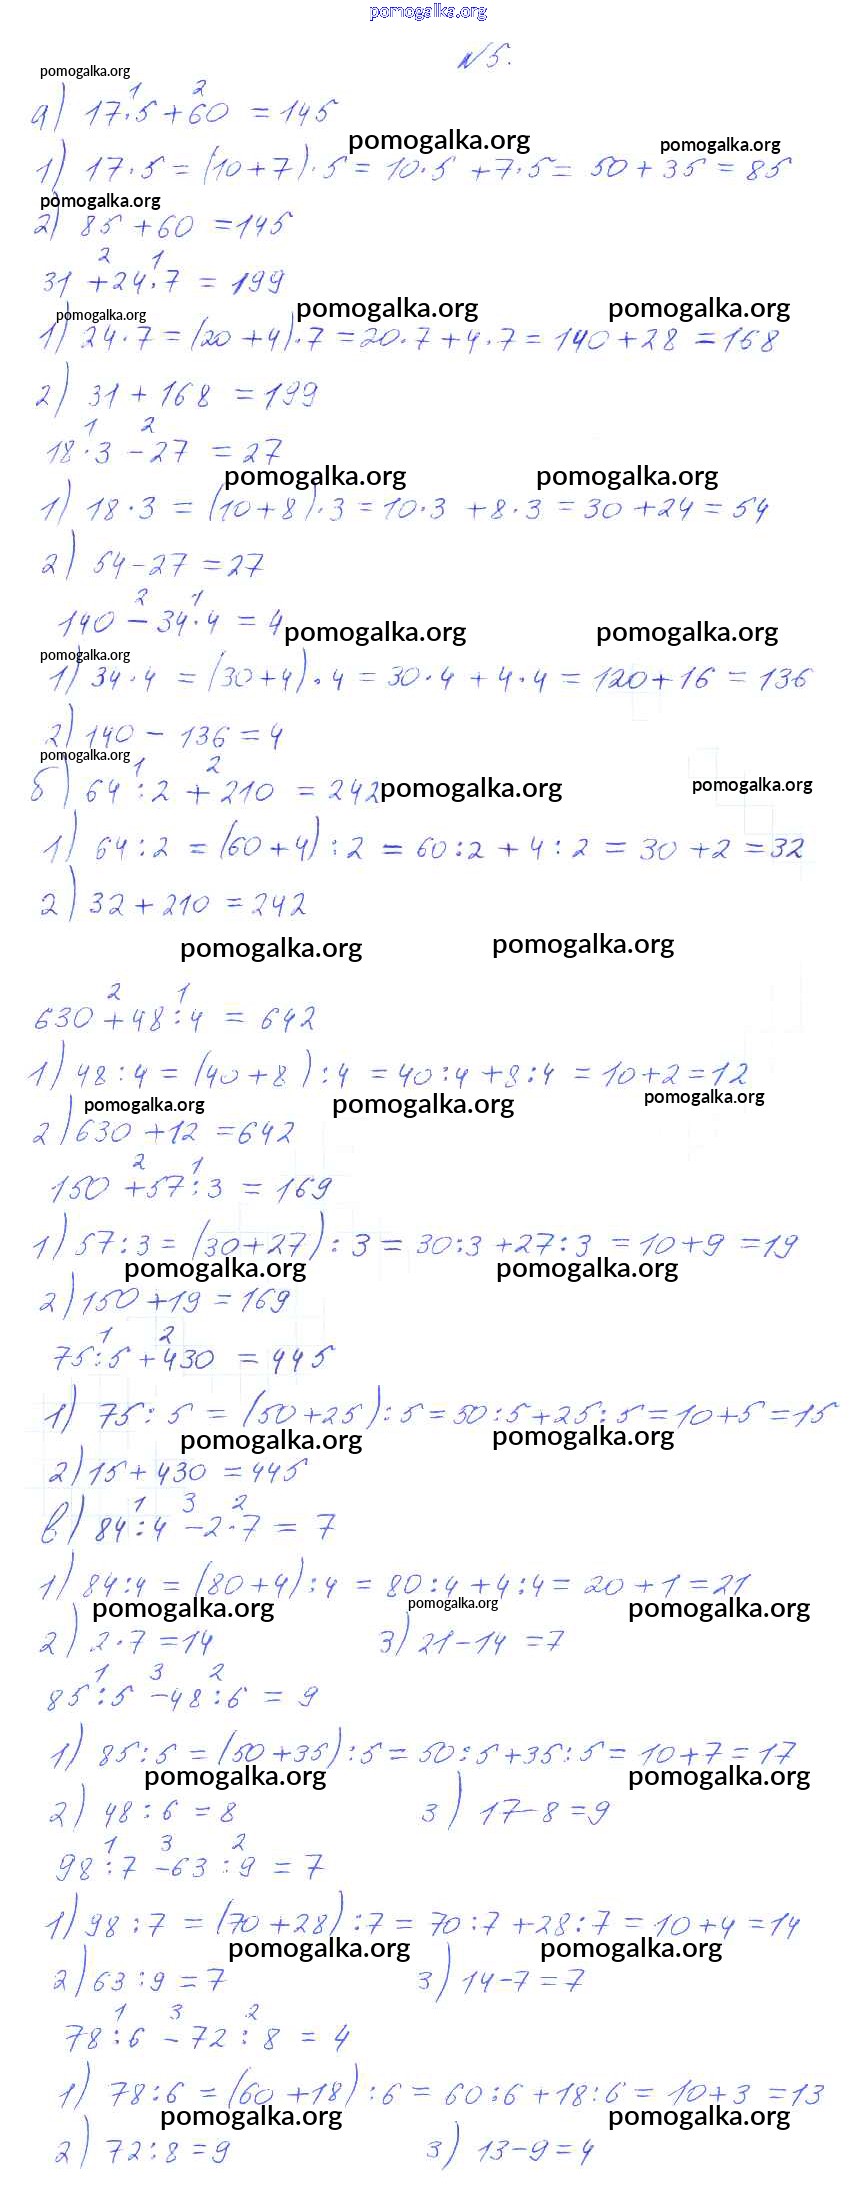 pomogalka.org
№5.
pomogalka.org
1 2
а) 17·5+60 =145
pomogalka.org pomogalka.org
1) 17·5=(10+7)·5=10·5+7·5=50+35=85
pomogalka.org
2) 85+60=145
2 1
31+24·7=199
pomogalka.org pomogalka.org pomogalka.org
1) 24·7=(20+4)·7=20·7+4·7=140+28=168
2) 31+168=199
1 2
18·3-27=27
pomogalka.org pomogalka.org
1) 18·3=(10+8)·3=10·3+8·3=30+24=54
2) 54-27=27
2 1
140-34·4=4
pomogalka.org pomogalka.org
pomogalka.org
1) 34·4=(30+4)·4=30·4+4·4=120+16=136
2) 140-136=4
pomogalka.org
1 2
б) 64:2+210=242
pomogalka.org pomogalka.org
1) 64:2=(60+4):2=60:2+4:2=30+2=32
2) 32+210=242
pomogalka.org pomogalka.org
2 1
630+48:4=642
1) 48:4=(40+8):4=40:4+8:4=10+2=12
pomogalka.org pomogalka.org pomogalka.org
2) 630+12=642
2 1
150+57:3=169
1) 57:3=(30+27):3=30:3+27:3=10+9=19
pomogalka.org pomogalka.org
2) 150+19=169
1 2
75:5+430=445
1) 75:5=(50+25):5=50:5+25:5=10+5=15
pomogalka.org pomogalka.org
2) 15+430=445
1 3 2
в) 84:4-2·7=7
1) 84:4=(80+4):4=80:4+4:4=20+1=21
pomogalka.org pomogalka.org pomogalka.org
2) 2·7=14 3) 21-14=7
1 3 2
85:5-48:6=9
1) 85:5=(50+35):5=50:5+35:5=10+7=17
pomogalka.org pomogalka.org
2) 48:6=8 3) 17-8=9
1 3 2
98:7-63:9=7
1) 98:7=(70+28):7=70:7+28:7=10+4=14
pomogalka.org pomogalka.org
2) 63:9=7 3) 14-7=7
1 3 2
78:6-72:8=4
1) 78:6=(60+18):6=60:6+18:6=10+3=13
pomogalka.org pomogalka.org
2) 72:8=9 3) 13-9=4